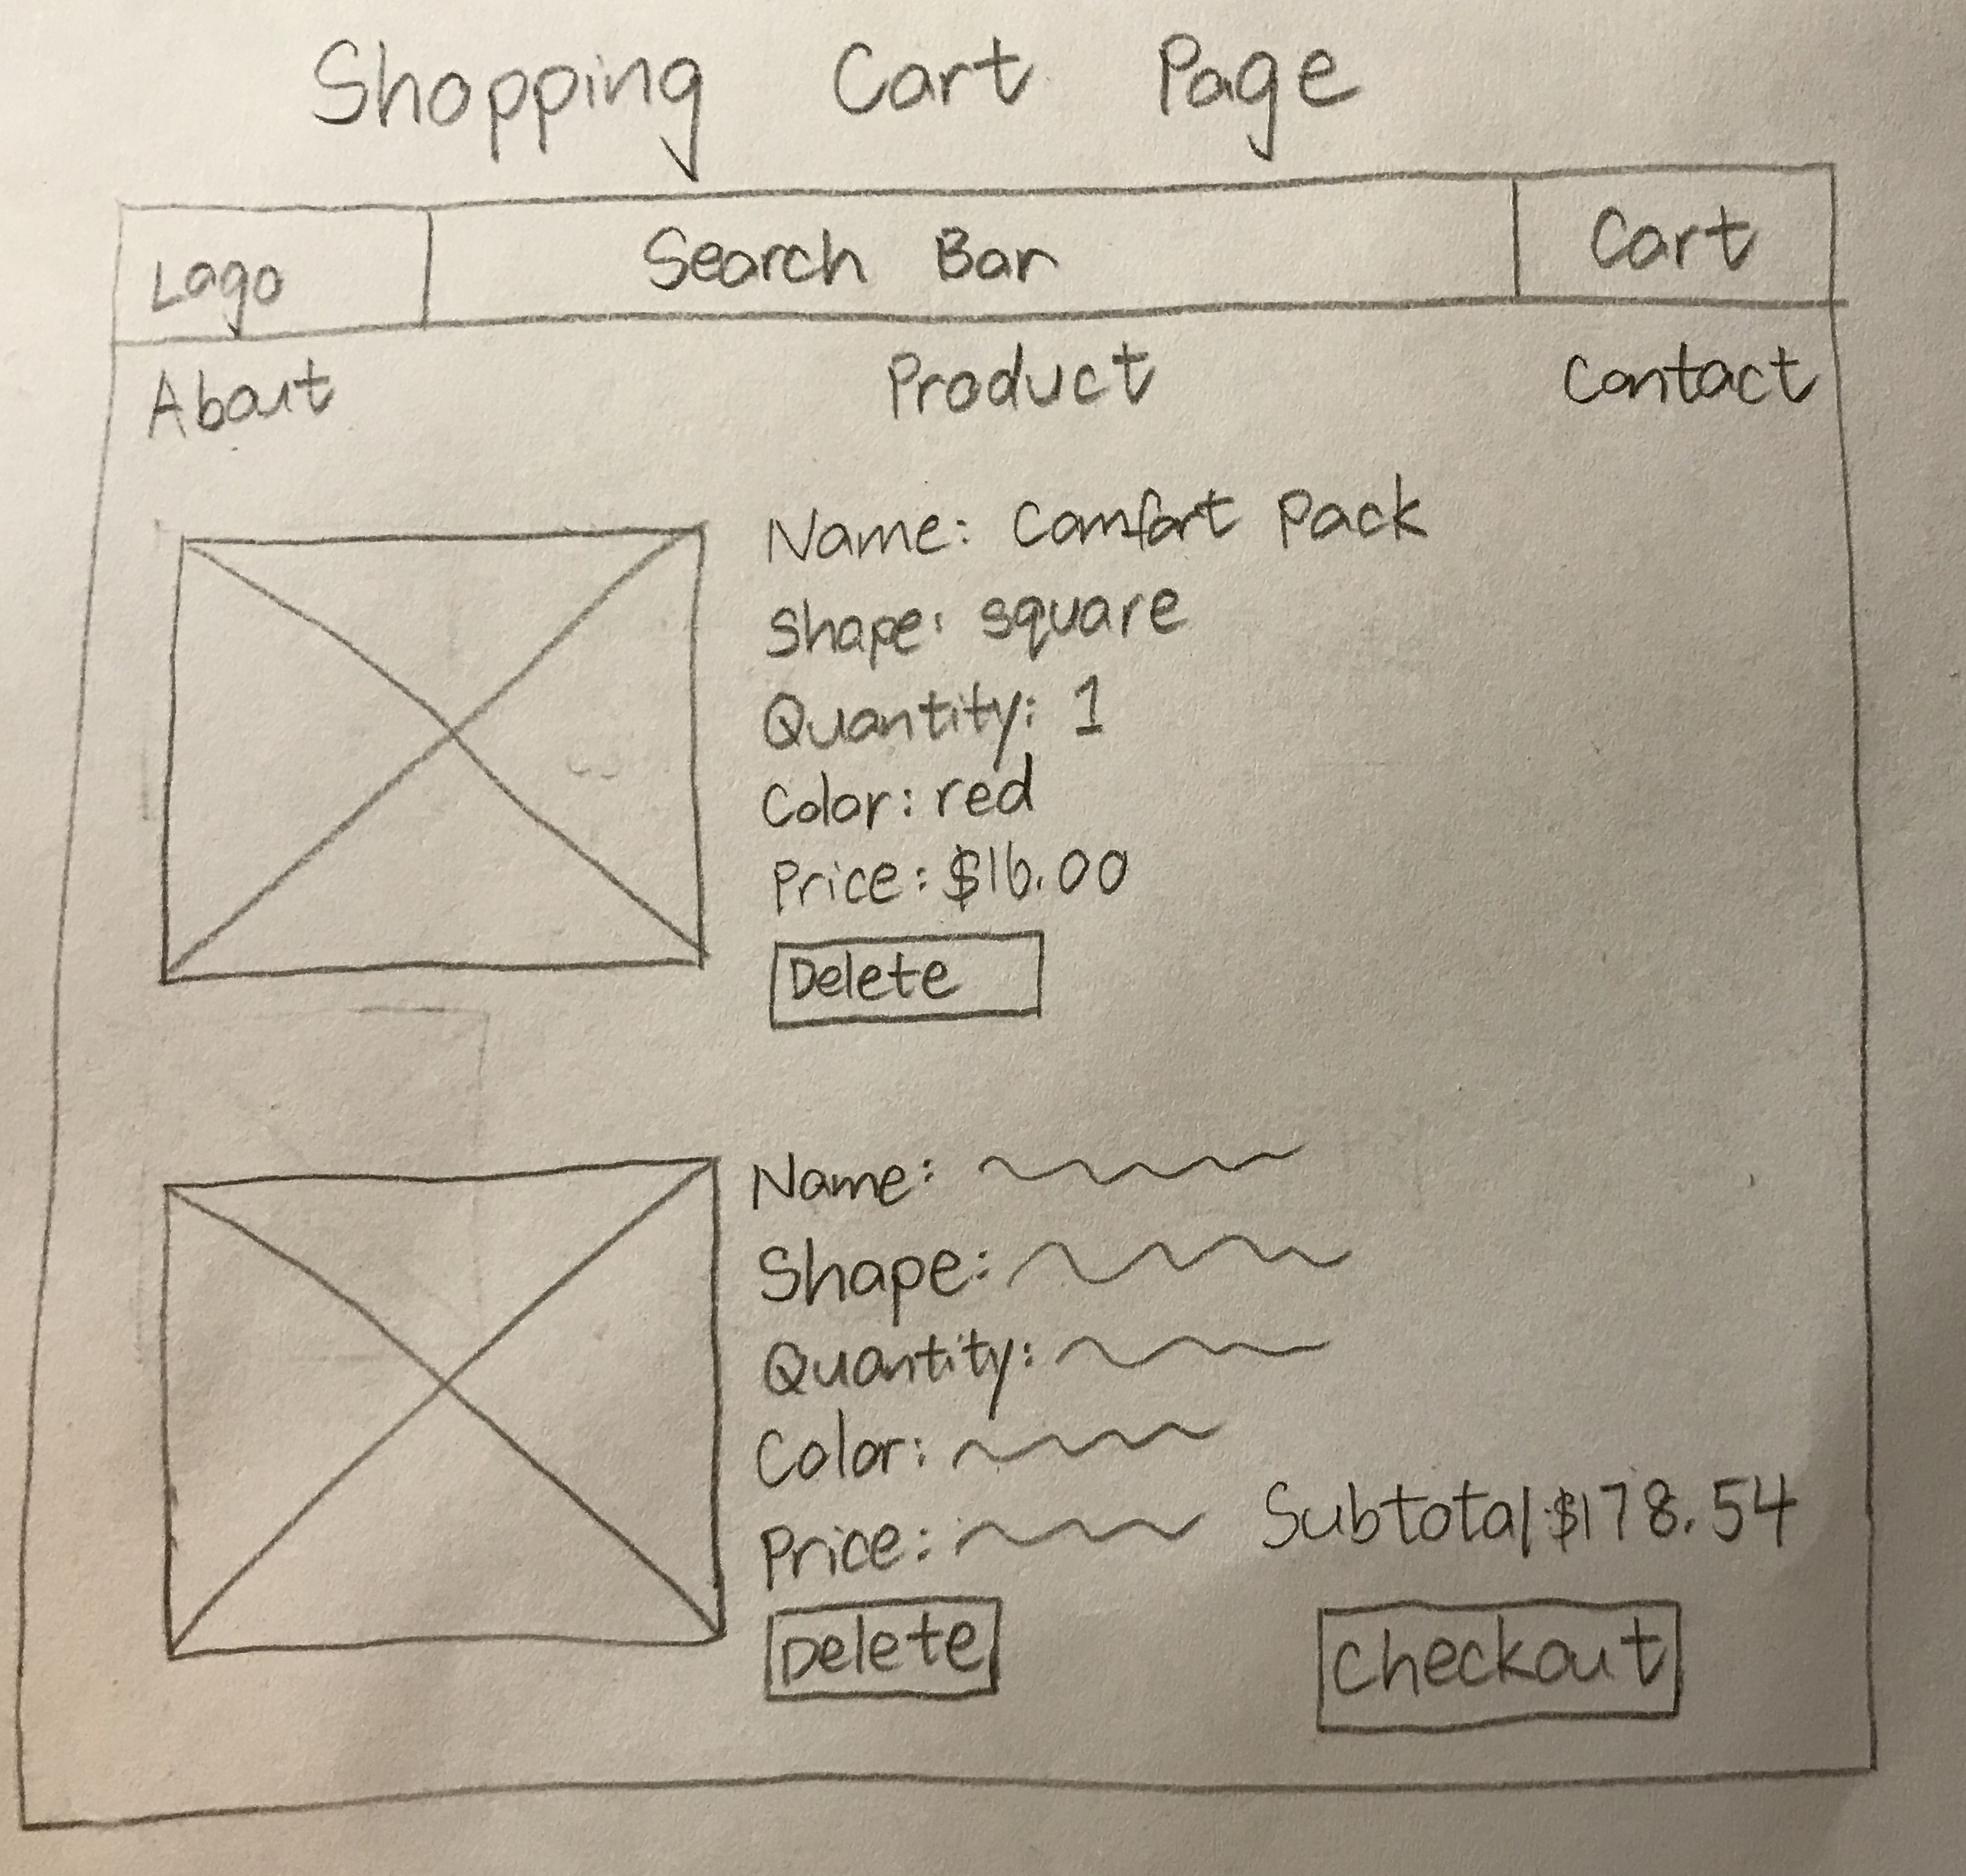 Shopping Cart Page
Logo Search Bar Cart
About Product Contact
Name: Comfort Pack
Shape: square
Quantity: 1
Color: red
Price: $16.00
Delete
Name:
Shape:
Quantity:
Color:
Price:
Subtotal $178.54
Delete
Checkout